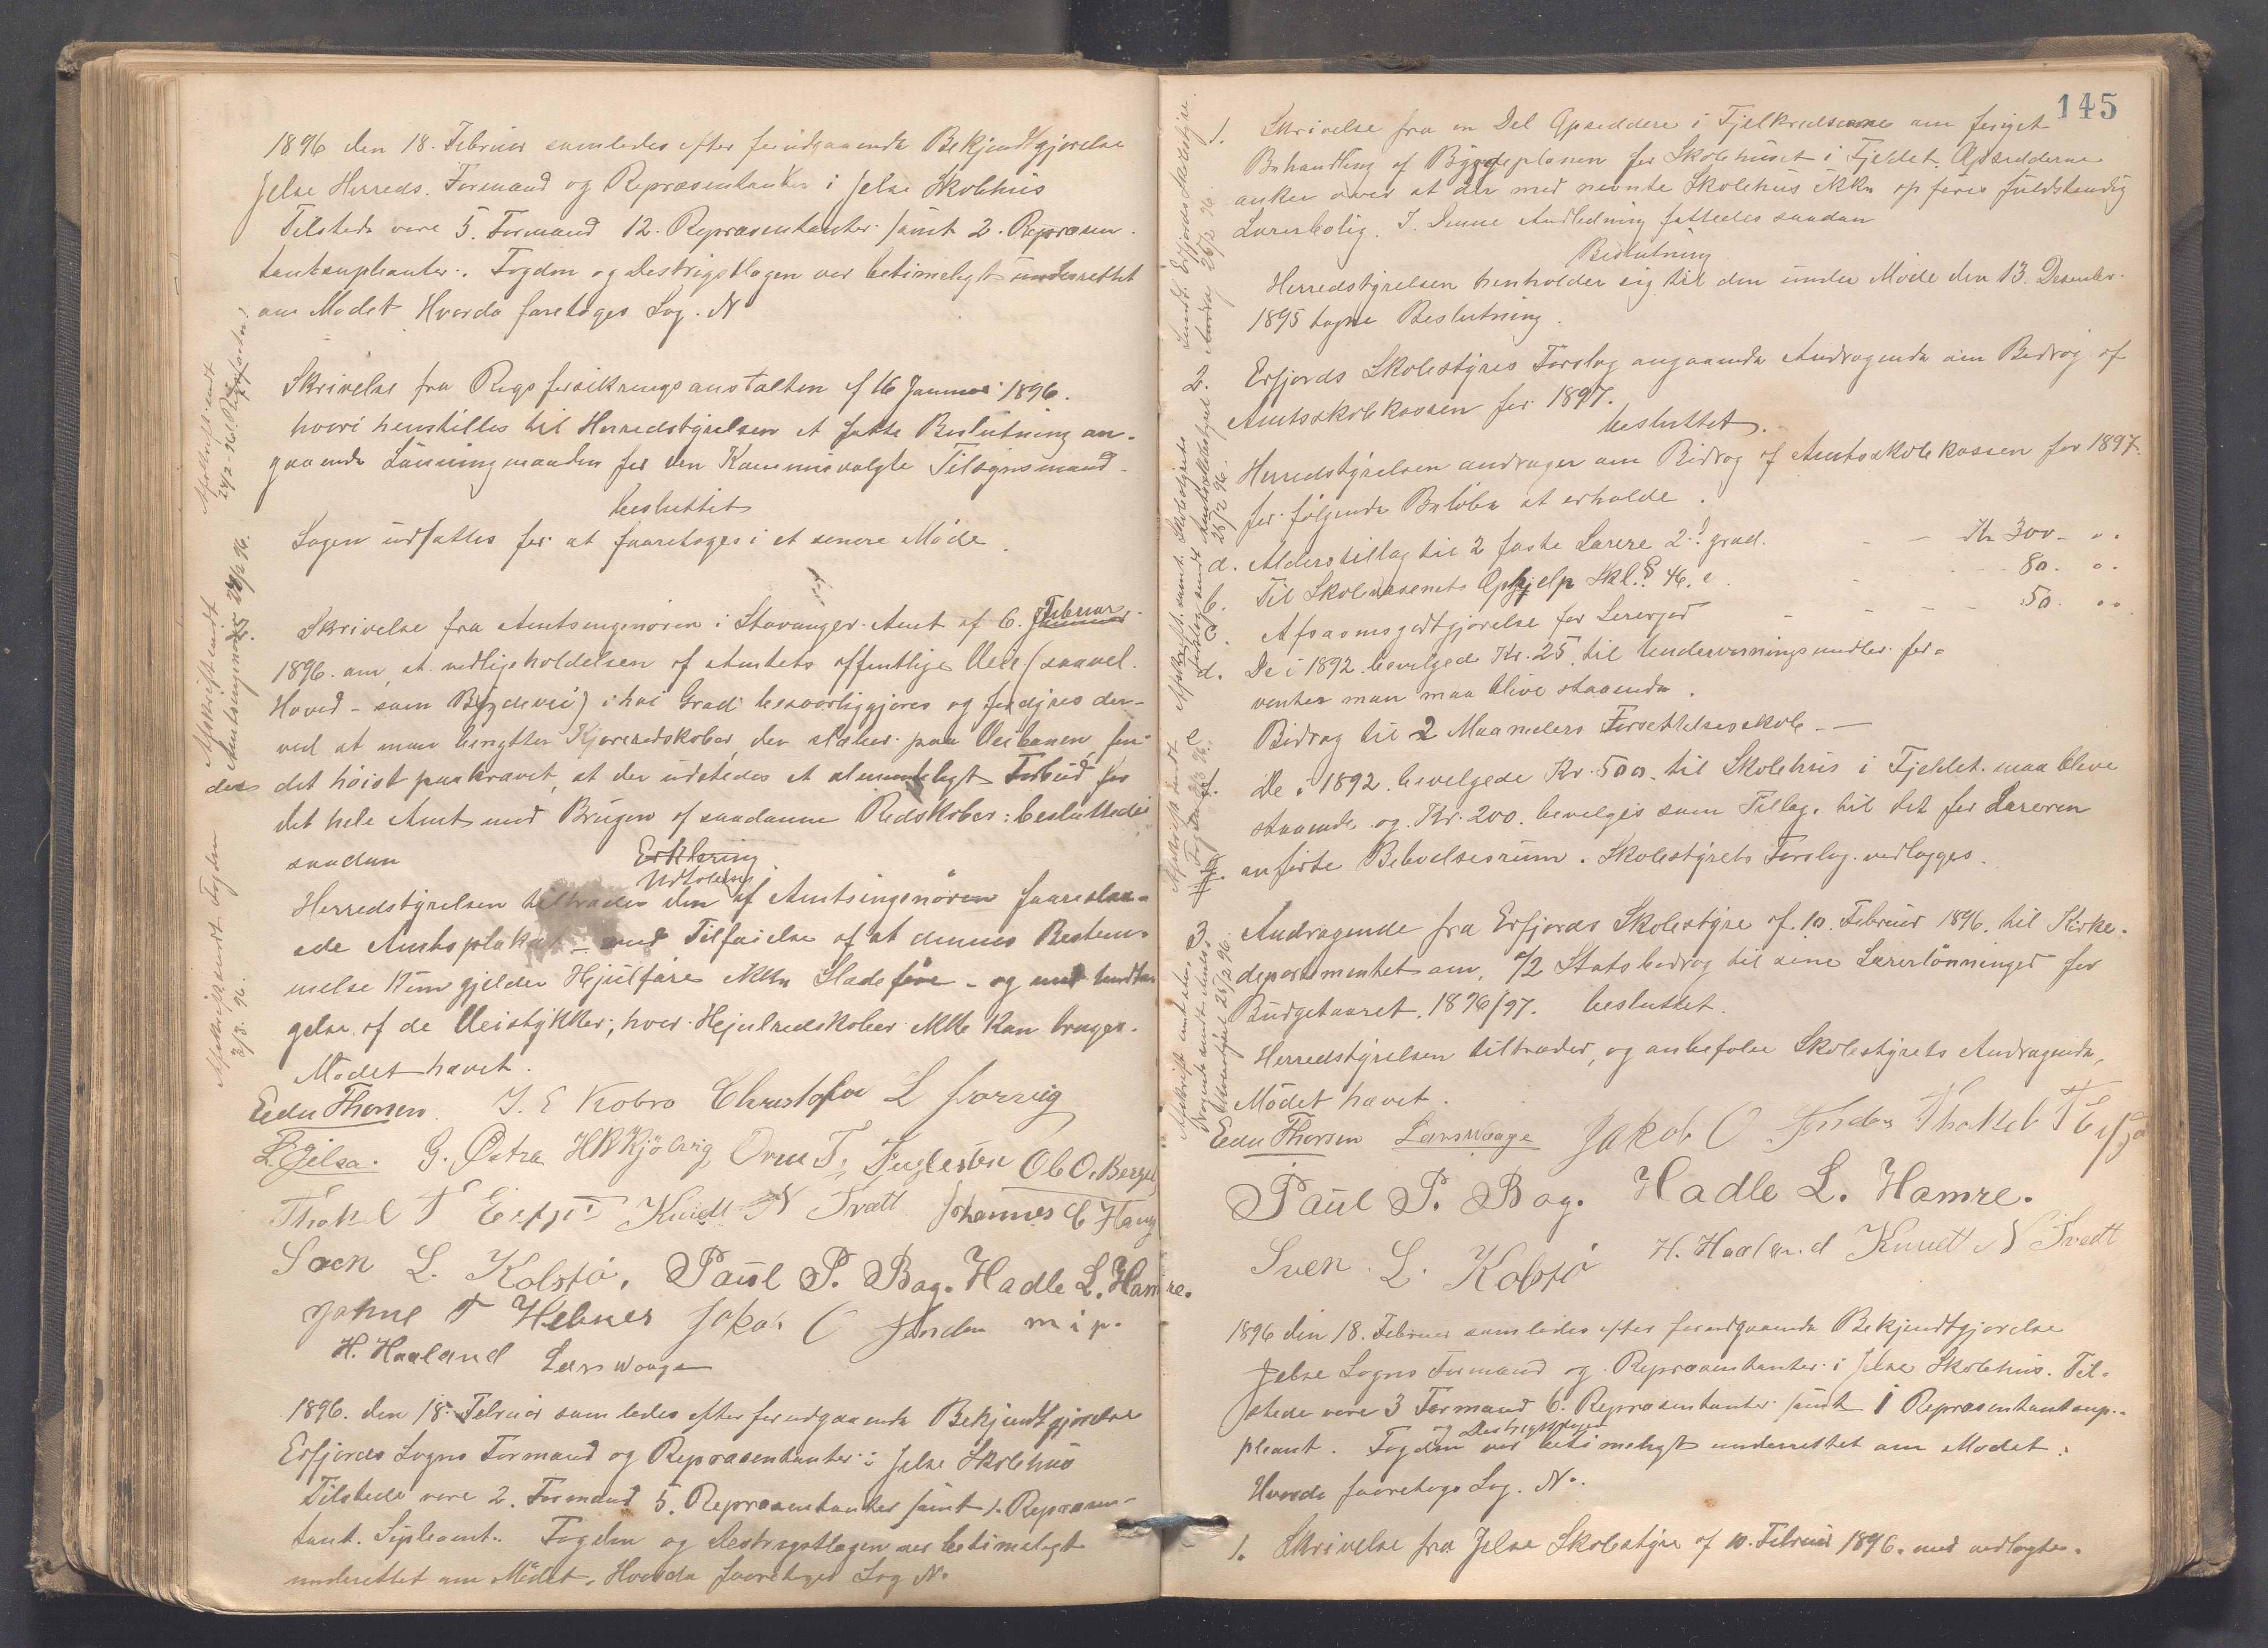 1896 den 18. Februar samledes efter forudgaaende Bekjendtgjørelse
Jelse Herreds. Formænd og Repræsentanter i Jelse Skolehus
Tilstede vare 5. Formænd 12. Repræsentanter samt 2. Repræsen-
tantsupleanter. Fogden og Destrigstlægen var betimeligt underrettet
om Mødet Hvorda foretoges Sag. N
Skrivelse fra Rigsforsikringsanstalten af 16 Januar 1896.
hvori henstilles til Herredstyrelsen at fatte Beslutning an-
gaaende Lønningmaaden for den Kommunevalgte Tilsynsmand-
besluttet
Sagen udsattes for at foaretages i et senere Møde.
Skrivelse fra Amtsingeniøren i Stavanger Amt af 6. Februar
1896. om, at vedligeholdelsen af Amtets offentlige Veie (saavel
Hoved- som Bygdevei) i høi Grad besværliggjøres og fordyres der-
ved at man benytter Kjøreredskaber, der slæber paa Veibanen, fin-
des det høist paakrævet, at der udstedes et almindeligt Forbud for
det hele Amt med Brugen af saadanne Redskaber: besluttedes
saadan Erklæring.
Udtalelse
Herredstyrelsen tiltræder den af Amtsingeniøren foareslaa-
ede Amtsplakat - med Tilføielse af at dennes Bestem-
melse kun gjelder Hjulføre ikke Sladeføre - og med undta-
gelse af de Veistykker, hvor Hjulredskaber ikke kan bruges.
Mødet hævet.
Edu Thorsen. J. E Kobro Christofer L Foraug
L. Gjelsa. G. Østra H R Kjølvig Orm T. Fuglesten Ole O. Berge
Thokel T Eifjo Knudt N Tvætt Johannes C Haug
Sven L. Kolstø. Paul P. Bag. Hadle L. Hamre.
Johne T Hebnes Jakob O Handen m. i p.
H. Haaland Lars Waage
1896. den 18. Februar samledes efter forudgaaende Bekjendtgjørelse
Erfjords Sogns Formænd og Repræsentanter i Jelse Skolehus
Tilstede vare 2. Formænd 5. Repræsentanter samt 1. Repræsen-
tant. Supleant. Fogden og Destrigstlægen var betimeligt
underettet om Mødet. Hvorda foaretoges Sag N.
145
1. Skrivelse fra en Del Opsiddere i Fjelkredsene om forÿet
Behandling af Byggeplanen for Skolehuset i Fjeldet. Opsidderne
anker over at der med nevnte Skolehus ikke opføres fuldstendig
Lærerbolig. I. Denne Andledning fattedes saadan
Beslutning
Herredstyrelsen henholder sig til den under Møde den 13. Desember.
1895 tagne Beslutning.
2. Erfjords Skolestyres Forslag angaaende Andragende om Bidrag af
Amtsskolekassen for 1897.
besluttet.
Herredstyrelsen andrager om Bidrag af Amtsskolekassen for 1897.
for følgende Beløbe at erholde.
a. Alderstillæg til 2 faste Lærere 2. grad. - - Kr 300 - „.
b. Til Skolevæsenets Ophjelp Skl. § 46. e. - - 80. „.
c. Afsavnsgodtgjørelse for Lererjord - - - 50. „.
d. De i 1892 bevilgede Kr. 25. til Undervisningsmidler for-
venter man maa blive staaende.
e Bidrag til 2 Maaneders Forsettelsesskole - —
f. De i 1892. bevelgede Kr. 500. til Skolehus i Fjeldet. maa blive
staaende og. Kr. 200. bevelges som Tillæg. til det for Læreren
anførte Bekvelsesrum. Skolestyrets Forslag. vedlægges.
3 Andragende fra Erfjords Skolestyre af. 10. Februar 1896. til Kirke-
departementet om, 1/2 Statsbidrag til sine Lærerlønninger for
Budgetaaret. 1896/97. besluttet.
Herredstyrelsen tiltræder, og anbefaler Skolestyrets Andragende.
Mødet hævet.
Edu Thorsen Lars Waage Jakob O Handen Thokel T Eifjo
Paul P. Bag. Hadle L. Hamre.
Sven L. Kolstø H. Haaland Knudt N Tvedt
1896 den 18. Februar samledes efter forudgaaende Bekjendtgjørelse
Jelse Sogns Formænd og Repræsentanter i Jelse Skolehus. Til-
stede vare 3 Formænd 6. Repræsentanter samt 1 Repræsentantsup-
og Destrigstlægen
pleant. Fogden var betimeligt underrettet om Mødet.
Hvorda foaretoges Sag. N.
1. Skrivelse fra Jelse Skolestyre af 10. Februar 1896. med vedlagte.